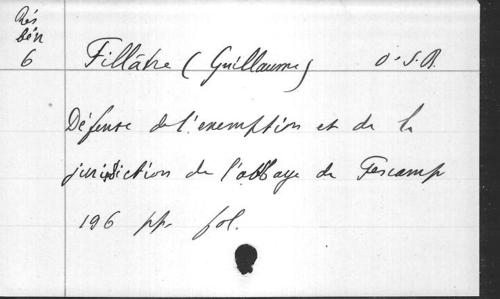 Rés
Bén
6
Fillâtre (Guillaume) O.S.B.
Défense de l'exemption et de la
juridiction de l'abbaye de Fescamp
196 pp. fol.